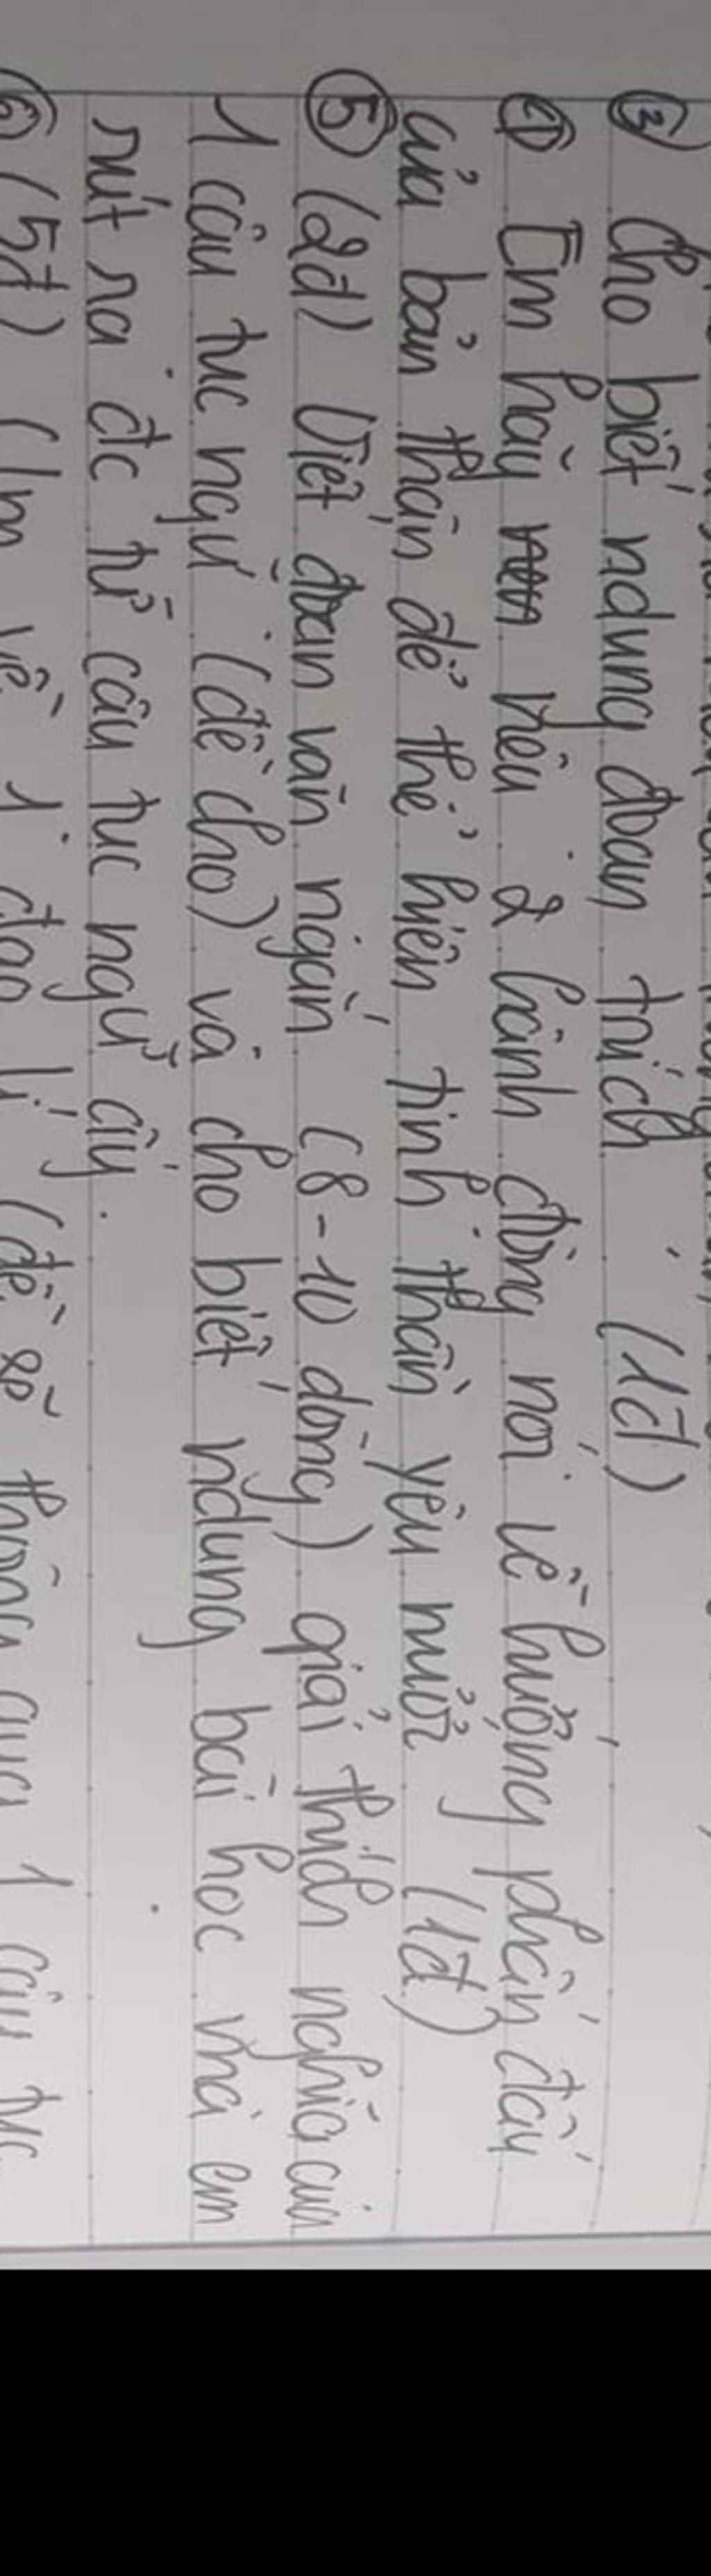 ③ Cho biết ndung đoạn trích (1đ)
④ Em hãy nêu 2 hành động nói về hướng phấn đấu
của bản thân để thể hiện tinh thần yêu nước (1đ)
⑤ (2đ) Viết đoạn văn ngắn (8-10 dòng) giải thích nghĩa của
1 câu tục ngữ (đề cho) và cho biết ndung bài học mà em
rút ra đc từ câu tục ngữ ấy.
⑥ (5đ) về 1 đạo lí (đề sẽ thông qua 1 câu tục